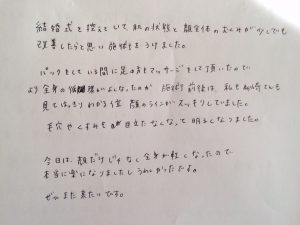 結婚式を控えていて、肌の状態と顔全体のむくみが少しでも
改善したらと思い施術をうけました。
パックをしている間に足の方をマッサージをして頂いたので
より全身の 良い しなったのか 施術前後は、私も 見ても
見てはっきりわかる位 顔のラインがスッキリしていました。
毛穴やくすみも 目立たなくなって 明るくなりました。
今日は、顔だけじゃなく全身が軽くなったので
本当に楽になりましたしうれしかったです。
ぜひまた来たいです。